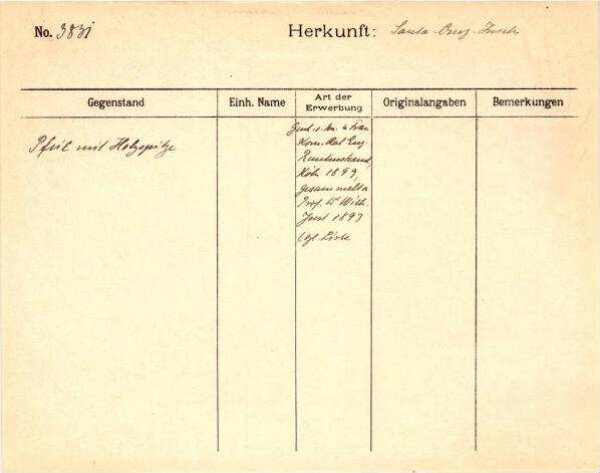 No. 3831 Herkunft: Santa-Cruz-Inseln
Gegenstand Einh. Name Art der Erwerbung Originalangaben Bemerkungen
Pfeil mit Holzspitze
Frau
Kom. Rat Eug.
Rautenstrauch,
Köln 1899,
gesammelt v.
Prof. Dr Wilh.
Joest 1897
Liste